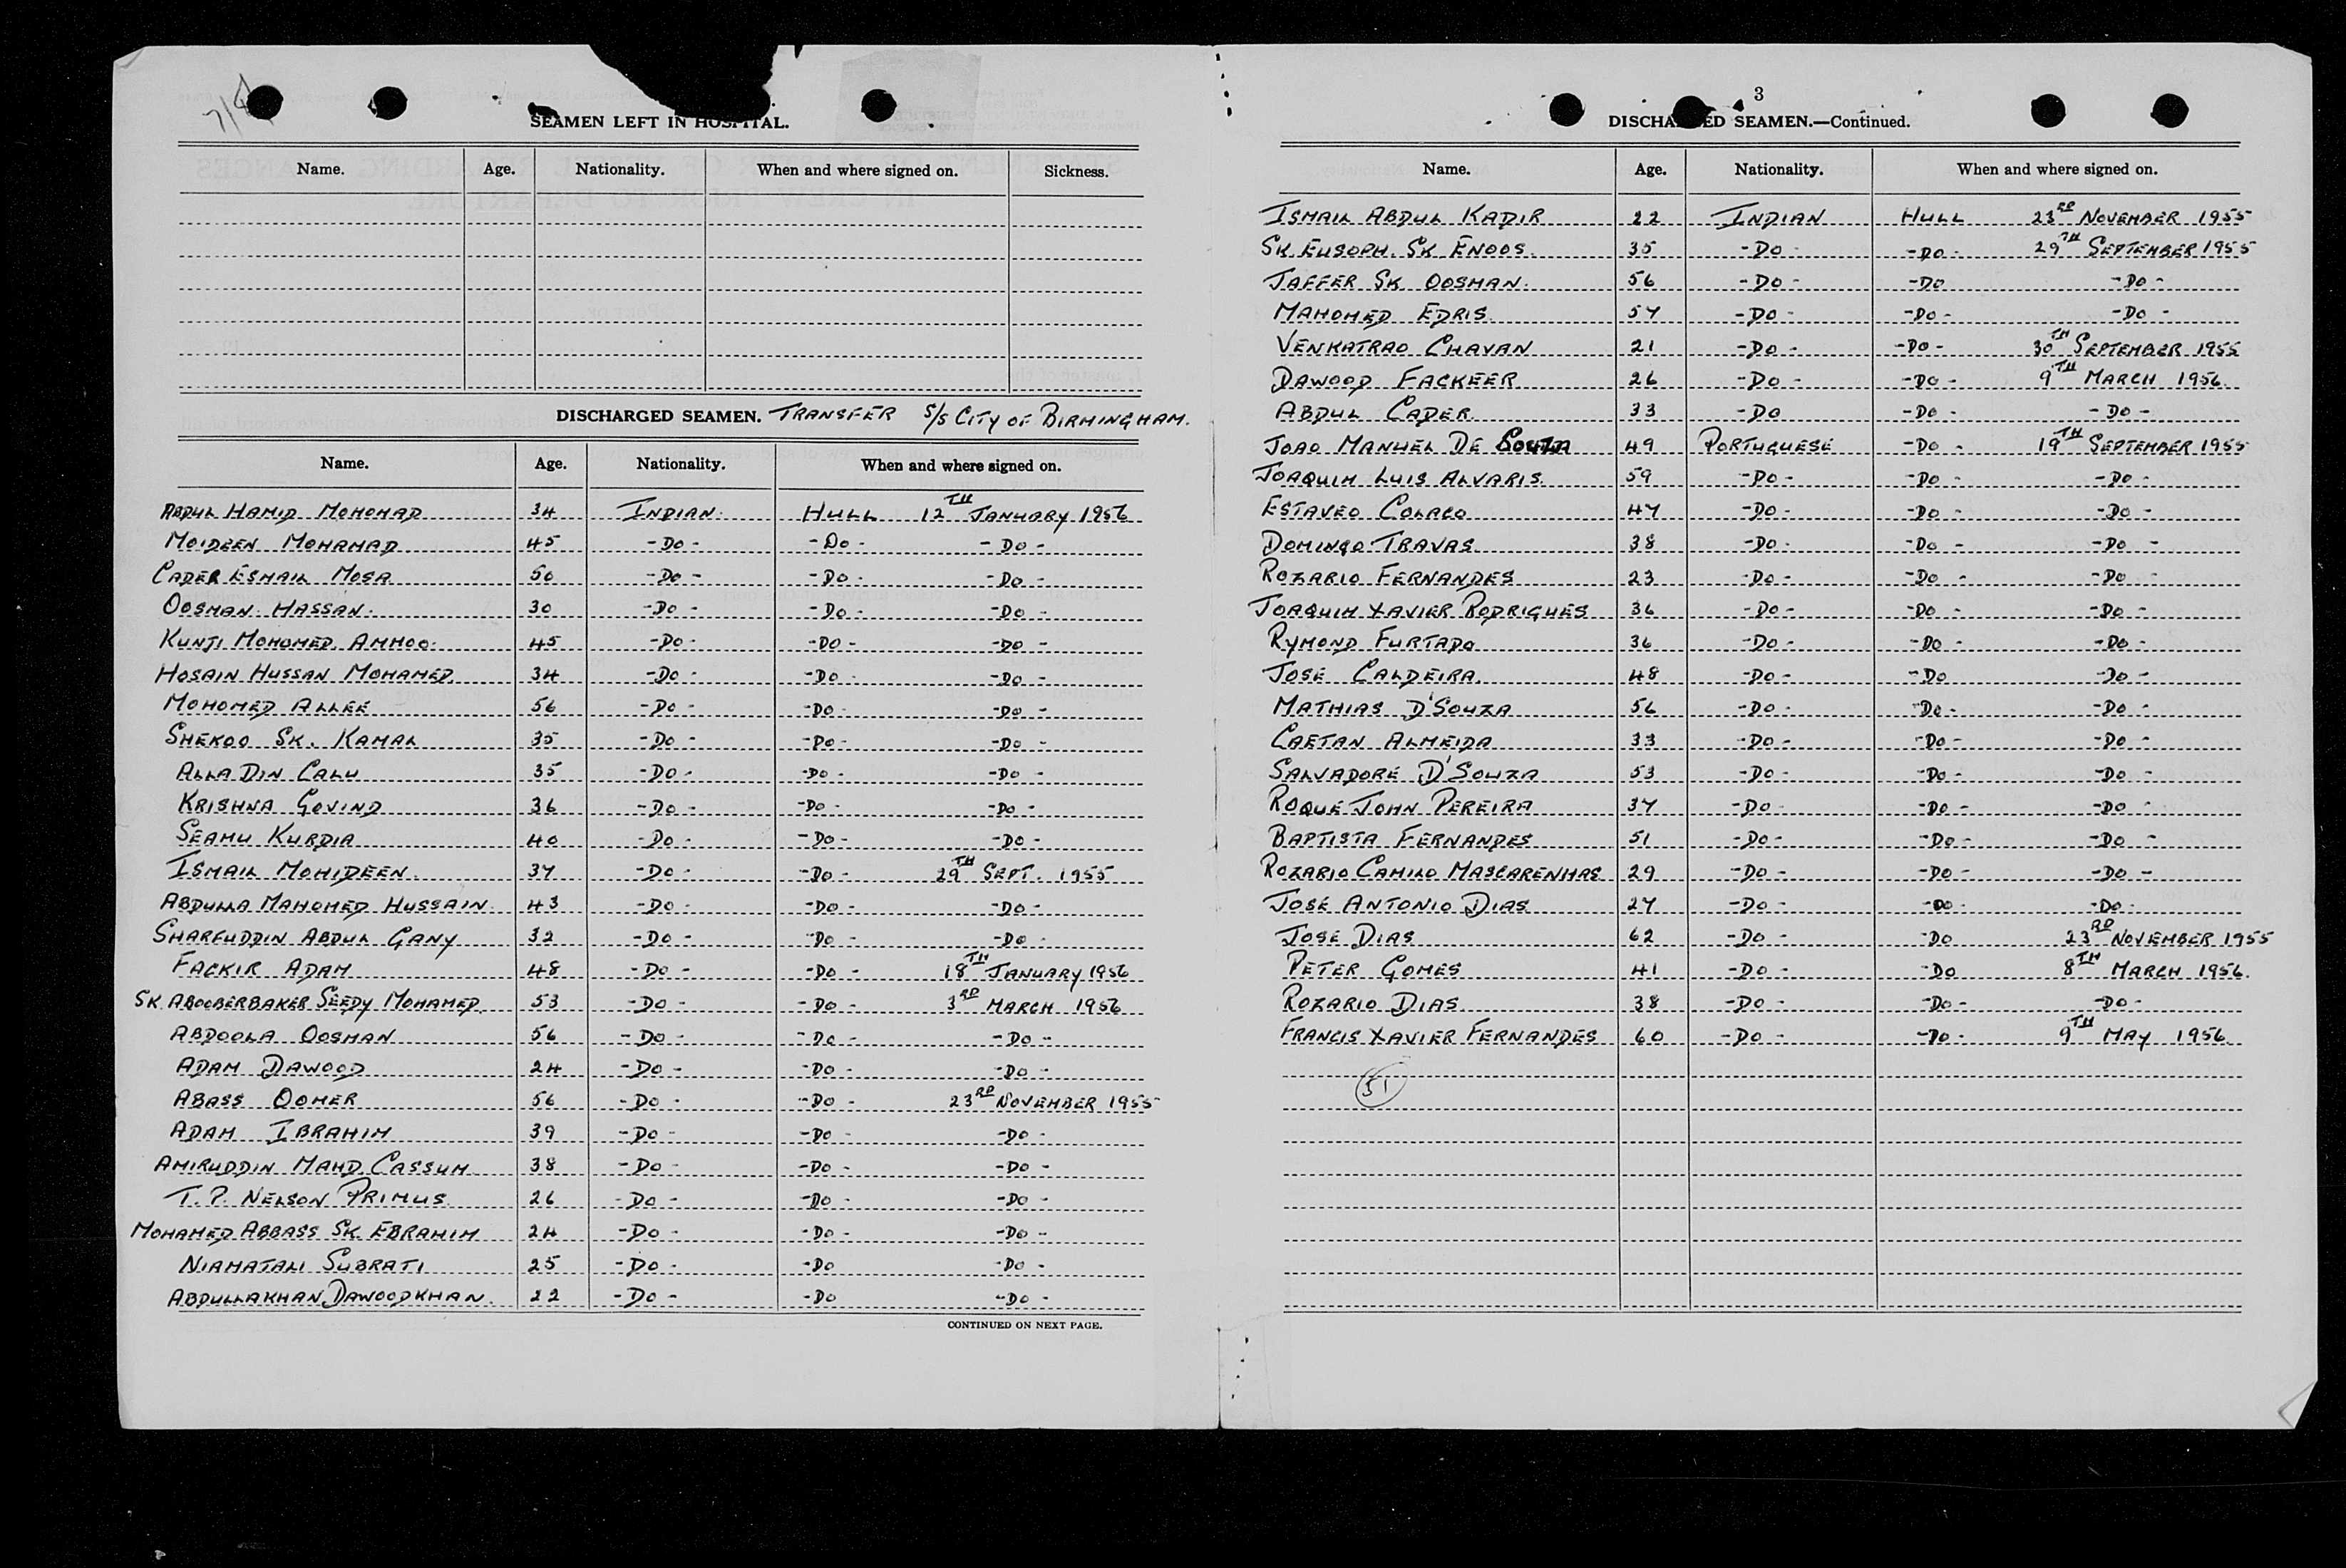 7/8
SEAMEN LEFT IN HOSPITAL.
Name. Age. Nationality. When and where signed on. Sickness.
DISCHARGED SEAMEN. TRANSFER S/S CITY OF BIRMINGHAM.
Name. Age. Nationality. When and where signed on.
ABDUL HAMID MOHOMAD 34 INDIAN. HULL 12TH JANUARY 1956
MOIDEEN MOHAMAD 45 -DO- -DO- -DO-
CADER ESMAIL MOSA 50 -DO- -DO- -DO-
OOSMAN HASSAN. 30 -DO- -DO- -DO-
KUNJI MOHOMED AMMOO. 45 -DO- -DO- -DO-
HOSAIN HUSSAN MOHAMED. 34 -DO- -DO- -DO-
MOHOMED ALLEE 56 -DO- -DO- -DO-
SHEKOO SK. KAMAL 35 -DO- -DO- -DO-
ALLA DIN CALU 35 -DO- -DO- -DO-
KRISHNA GOVIND 36 -DO- -DO- -DO-
SEAMU KURDIA 40 -DO- -DO- -DO-
ISMAIL MOHIDEEN. 37 -DO- -DO- 29TH SEPT. 1955
ABDULLA MAHOMED HUSSAIN. 43 -DO- -DO- -DO-
SHARFUDDIN ABDUL GANY 32 -DO- -DO- -DO-
FACKIR ADAM 48 -DO- -DO- 18TH JANUARY 1956
SK. ABOOBERBAKER SEEDY MOHAMED. 53 -DO- -DO- 3RD MARCH 1956
ABDOOLA OOSMAN 56 -DO- -DO- -DO-
ADAM DAWOOD 24 -DO- -DO- -DO-
ABASS OOMER 56 -DO- -DO- 23RD NOVEMBER 1955
ADAM IBRAHIM 39 -DO- -DO- -DO-
AMIRUDDIN MAHD. CASSUM 38 -DO- -DO- -DO-
T. P. NELSON PRIMUS. 26 -DO- -DO- -DO-
MOHAMED ABBASS SK. EBRAHIM 24 -DO- -DO- -DO-
NIAMATALI SUBRATI 25 -DO- -DO -DO-
ABDULLAKHAN DAWOODKHAN. 22 -DO- -DO -DO-
CONTINUED ON NEXT PAGE.
3
DISCHARGED SEAMEN.—Continued.
Name. Age. Nationality. When and where signed on.
ISMAIL ABDUL KADIR 22 INDIAN HULL 23RD NOVEMBER 1955
SK. EUSOPH. SK ENOOS. 35 -DO- -DO- 29TH SEPTEMBER 1955
JAFFER SK OOSMAN. 56 -DO- -DO -DO-
MAHOMED EDRIS. 57 -DO- -DO- -DO-
VENKATRAO CHAVAN 21 -DO- -DO- 30TH SEPTEMBER 1955
DAWOOD FACKEER 26 -DO- -DO- 9TH MARCH 1956.
ABDUL CADER. 33 -DO -DO- -DO-
JOAO MANUEL DE SOUZA 49 PORTUGUESE -DO- 19TH SEPTEMBER 1955
JOAQUIM LUIS ALVARIS. 59 -DO- -DO- -DO-
ESTAVEO COLACO 47 -DO- -DO- -DO-
DOMINGO TRAVAS. 38 -DO- -DO- -DO-
ROZARIO FERNANDES 23 -DO- -DO- -DO-
JOAQUIM XAVIER RODRIGUES 36 -DO- -DO- -DO-
RYMOND FURTADO 36 -DO- -DO- -DO-
JOSE CALDEIRA. 48 -DO- -DO -DO-
MATHIAS D'SOUZA 56 -DO- -DO- -DO-
CAETAN ALMEIDA 33 -DO- -DO- -DO-
SALVADORE D'SOUZA 53 -DO- -DO- -DO-
ROQUE JOHN PEREIRA 37 -DO- -DO- -DO-
BAPTISTA FERNANDES 51 -DO- -DO- -DO-
ROZARIO CAMILO MASCARENHAS 29 -DO- -DO- -DO-
JOSE ANTONIO DIAS 27 -DO- -DO- -DO-
JOSE DIAS 62 -DO- -DO 23RD NOVEMBER 1955
PETER GOMES 41 -DO- -DO 8TH MARCH 1956.
ROZARIO DIAS. 38 -DO- -DO- -DO-
FRANCIS XAVIER FERNANDES 60 -DO- -DO- 9TH MAY 1956.
51